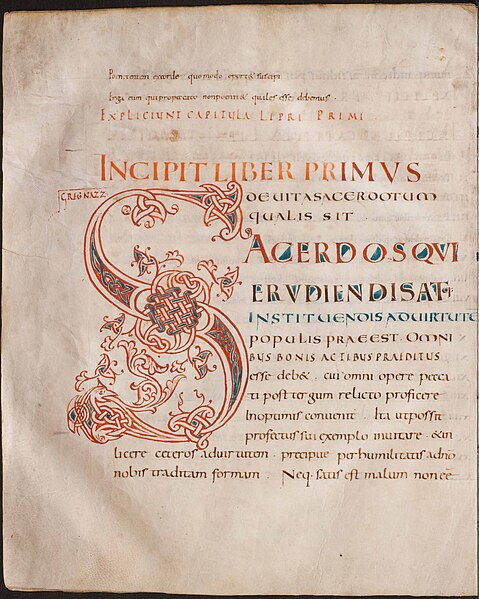 Penitentem excorde quomodo oport& suscipi
EXPLICIUNT CAPITULA LIBRI PRIMI
INCIPIT LIBER PRIMVS
GREGNAZZ
DE VITA SACERDOTUM
QUALIS SIT
SACERDOS QVI
ERVDIENDIS AT
INSTITUENDIS ADUIRTUTE
POPULIS PRAEEST. OMNI
BUS BONIS ACTIBUS PRAEDITUS
esse deb&. cui omni opere pecca
ti post tergum relicto proficere
Inoptimis conuenit. Ita utpossit
profectus sui exemplo inuitare. &in
licere ceteros aduirtutem. precipue per humilitatis adno
nobis traditam formam. Neq. satis est malum non ee